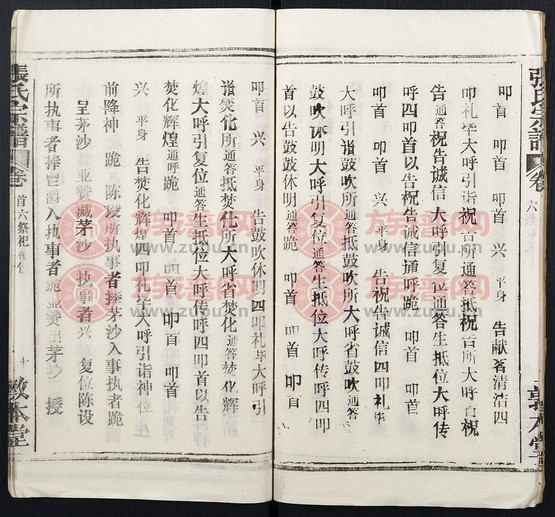 張氏宗譜
卷
六
敦本堂
叩首 興 平身 告献答清洁四
叩礼毕大呼引诣祝所通答抵祝所大呼省祝
通答祝告诚信大呼引复位通答生抵位大呼传
呼四叩首以告祝告诚信通呼跪 叩首 叩首
叩首 叩首 興 平身 告祝告诚信四叩礼毕
大呼引诣鼓吹所通答抵鼓吹所大呼省鼓吹
鼓吹休明大呼引复位通答生抵位大呼传呼四叩
首以告鼓吹休明通答跪 叩首 叩首 叩首
叩首 興 平身 告鼓吹休明四叩礼毕大呼引
诣焚化所通答抵焚化所大呼省焚化通答焚化辉
煌大呼引复位通答生抵位大呼传呼四叩首以告
焚化辉煌通呼跪 叩首 叩首 叩首 叩首
興 平身 告焚化辉煌四叩礼毕大呼引诣神位
前降神 跪 陈设所执事者捧茅沙入事执者跪
呈茅沙 亚赞藏茅沙 执事者興 复位陈设
所执事者捧 爵入执事者跪亚赞 茅沙 授
張氏宗譜
卷
首六祭祀
十
敦本堂
族譜网
www.zupu.cn